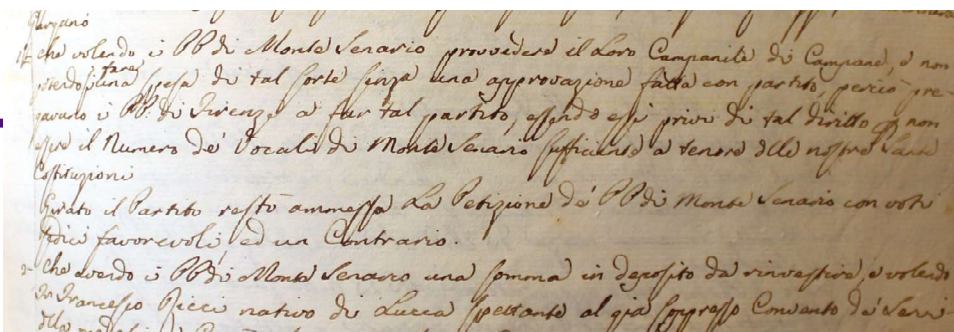 1º Che volendo i PP. di Monte Senario provvedere il Loro Campanile di Campane, e non
potendosi fare una spesa di tal sorte senza una approvazione fatta con partito, perciò pre-
gavano i PP. di Firenze a far tal partito, essendo essi privi di tal diritto p non
essere il Numero de' Vocali di Monte Senario sufficiente a tenore delle nostre Sante
Costituzioni
Girato il Partito restò ammessa La Petizione de' PP. di Monte Senario con voti
sedici favorevoli, ed un Contrario.
2º Che avendo i PP. di Monte Senario una somma in deposito da rinvestire, e volendo
Francesco Ricci nativo di Lucca spettante al già soppresso Convento de' Servi-
della